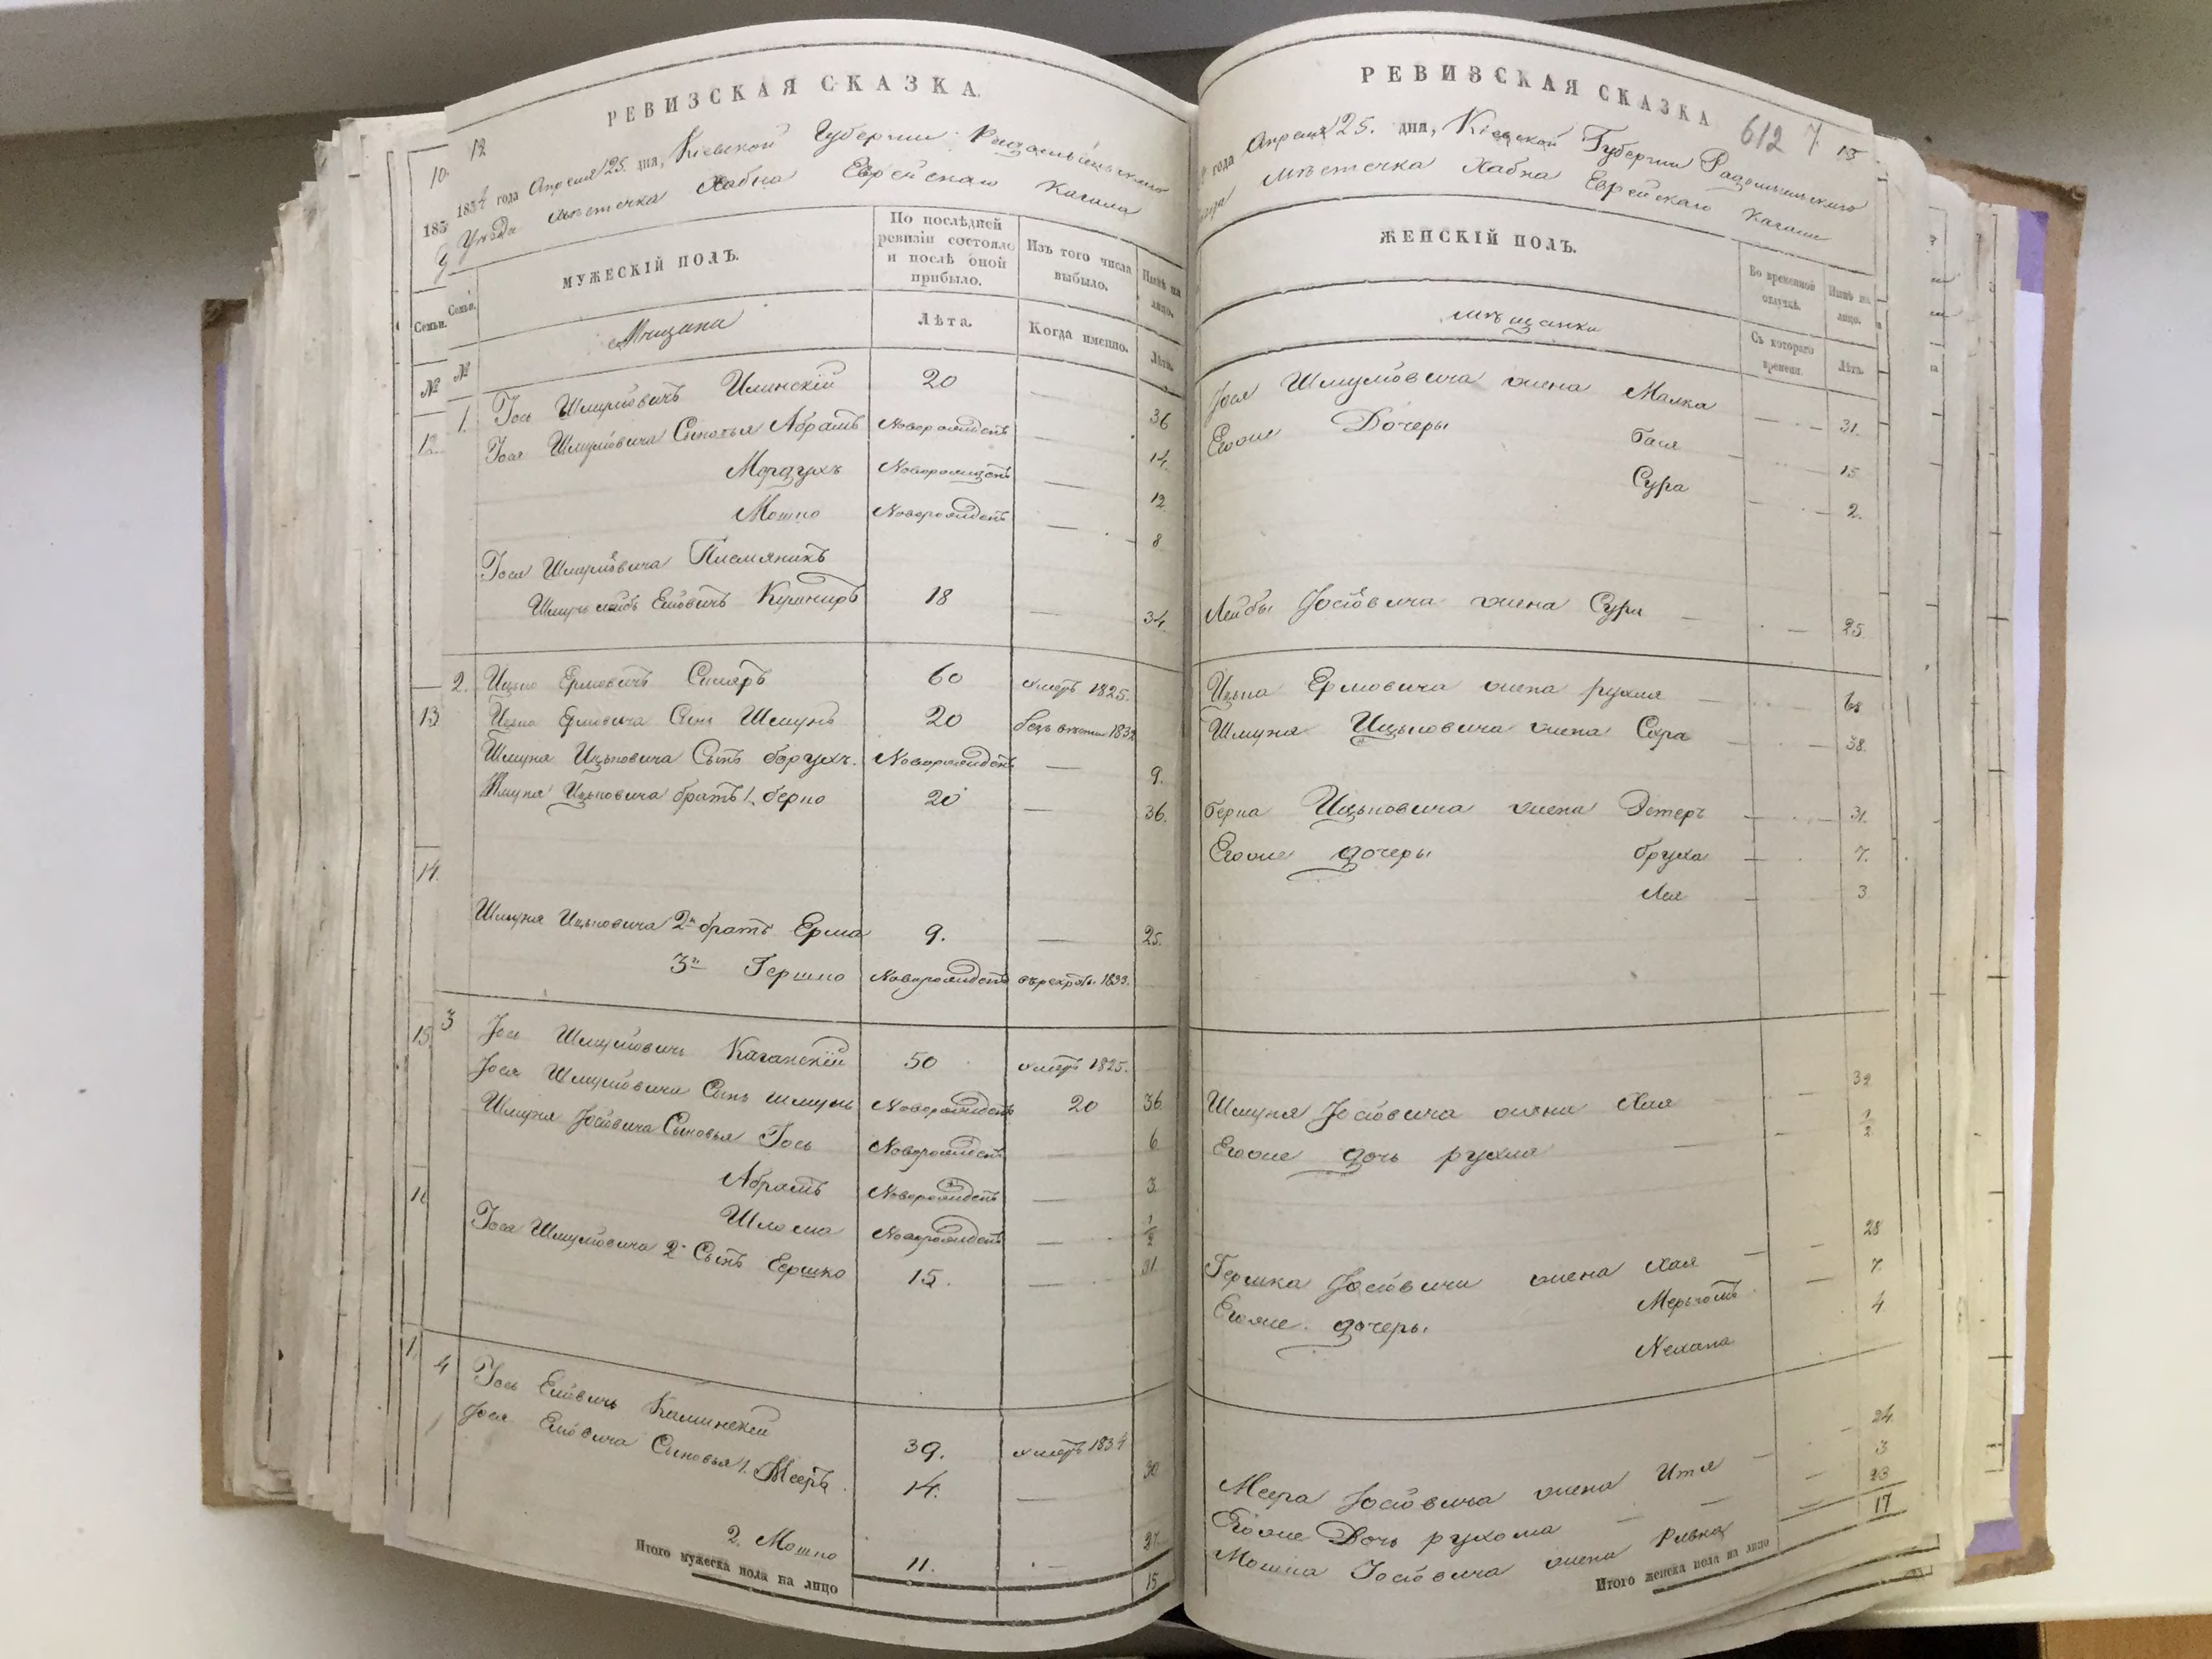 РЕВИЗСКАЯ СКАЗКА.
12
10.
1834 года Апреля 25. дня, Кіевской Губерніи Радомысльскаго
185
Уезда местечка Хабна Еврейскаго Кагала
Семьи. Семьи.
МУЖЕСКІЙ ПОЛЪ.
По послѣдней ревизіи состояло и послѣ оной прибыло.
Изъ того числа выбыло.
Нынѣ на лицо.
Мещана
Лѣта.
Когда именно.
Лѣта.
№ №
1. Іось Шмулёвичъ Илинскій 20 — 36
12. Іося Шмулёвича Сыновья Абрамъ Новорожденъ — 14.
Мордухъ Новорожденъ — 12
Мошко Новорожденъ — 8
Іося Шмулёвича Племяникъ
Шмуль лейбъ Еліовичъ Кушниръ 18 — 34.
2. Ицько Ермовичъ Смляръ 60 умеръ 1825.
13 Ицька Ермовича Сынъ Шмунь 20 1832
Шмуня Ицьковича Сынъ борухъ. Новорожденъ — 9.
Шмуня Ицьковича братъ 1. берко 20 — 36.
14.
Шмуня Ицьковича 2й братъ Ерма 9. — 25.
3й Гершко Новорожденъ 1833.
15. 3 Іось Шмулёвичъ Каганскій 50 умеръ 1825.
Іося Шмулёвича Сынъ шмунь Новорожденъ 20 36
Шмуня Іосіовича Сыновья Іось Новорожденъ — 6
Абрамъ Новорожденъ — 3.
Шлома Новорожденъ — 1/2
Іося Шмулёвича 2й Сынъ Гершко 15. — 31
4 Іось Еліовичъ Каминскій 39. умеръ 1834
Іося Еліовича Сыновья 1. Мееръ 14. — 30
2. Мошко 11. — 27
Итого мужеска пола на лицо 15
РЕВИЗСКАЯ СКАЗКА
612 7. 13
года Апреля 25. дня, Кіевской Губерніи Радомысльскаго
местечка Хабна Еврейскаго Кагала
ЖЕНСКІЙ ПОЛЪ.
Во временной отлучкѣ.
Нынѣ на лицо.
мещанки
Съ котораго времени.
Лѣта.
Іося Шмулёвича жена Малка — 31.
Егоже Дочеры бася — 15
Сура — 2.
Лейбы Іосіовича жена Сура — 25.
Ицька Ермовича жена рухля — 68
Шмуня Ицьковича жена Сура — 38.
берка Ицьковича жена Эстеръ — 31.
Егоже дочеры бруха — 7.
Лея — 3
Шмуня Іосіовича жена Хая 32
Егоже дочь рухля — 1/2
Гершка Іосіовича жена хая — 28
Егоже дочеры 7.
Нехама 4
Меера Іосіовича жена Итя — 24.
Егоже Дочь рухома — 3
Мошка Іосіовича жена Ривка — 23
Итого женска пола на лицо 17